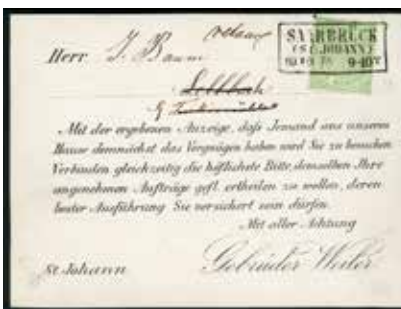 SAARBRÜCK
(ST. JOHANN)
9-10V
Herr J. Baum
Mit der ergebenen Anzeige, daß Jemand aus unserem
Hause demnächst das Vergnügen haben wird Sie zu besuchen
Verbinden gleichzeitig die höflichste Bitte, demselben Ihre
angenehmen Aufträge gefl. ertheilen zu wollen, deren
bester Ausführung Sie versichert sein dürfen.
Mit aller Achtung
St. Johann Gebrüder Weiler